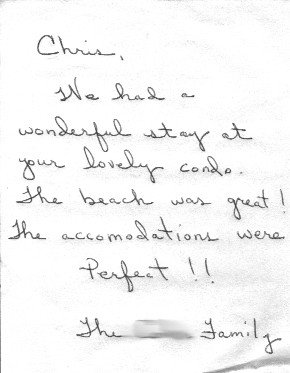 Chris,
We had a
wonderful stay at
your lovely condo.
The beach was great!
The accomodations were
Perfect !!
The Family